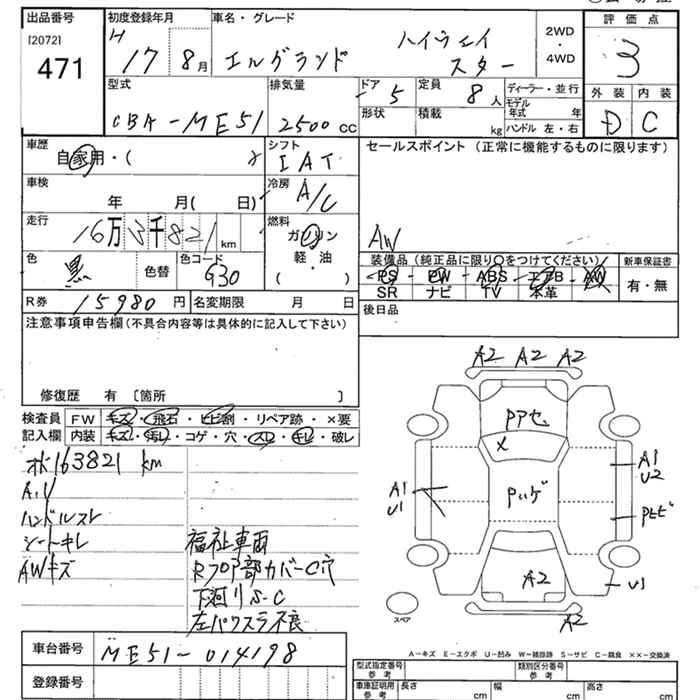 出品番号 初度登録年月 車名・グレード 評価点
[2072] H エルグランド ハイウェイ 2WD
471 17 8月 スター ・ 3
4WD
型式 排気量 ドア 定員 ディーラー・並行 外装 内装
CBA-ME51 2500 cc 5 8人 モデル年式 年 D C
形状 積載 kg ハンドル 左・右
車歴 シフト セールスポイント (正常に機能するものに限ります)
自家用・( ) IAT
車検 冷房
年 月( 日) A/C
走行 燃料
16万3千821km ガソリン AW
色 色コード 軽・油 装備品 (純正品に限り○をつけてください) 新車保証書
黒 色替 G30 ( ) PS PW ABS エアB AW 有・無
SR ナビ TV 本革
R券 15980円 名変期限 月 日 後日品
注意事項申告欄 (不具合内容等は具体的に記入して下さい)
修復歴 有 [箇所 ]
検査員 FW キズ・飛石・ヒビ割・リペア跡・×要
記入欄 内装 キズ・汚れ・コゲ・穴・スレ・キレ・破レ
163821 km
ハンドルスレ
シートキレ 福祉車両
AWキズ Rフロア部カバーC穴
下廻りS.C
左パワスラ不良
A2 A2 A2
Pアセ
X
A1
U2
A1
U1
Pヒビ
A2
U1
スペア
A2
A-キズ E-エクボ U-凹み W-補修跡 S-サビ C-腐食 ××-交換済
車台番号 ME51-014198
登録番号
型式指定番号 参考 類別区分番号 参考
車庫証明用 参考 長さ cm 幅 cm 高さ cm